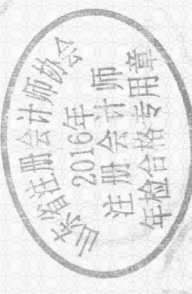 山东省注册会计师协会
2016年
注册会计师
年检合格专用章